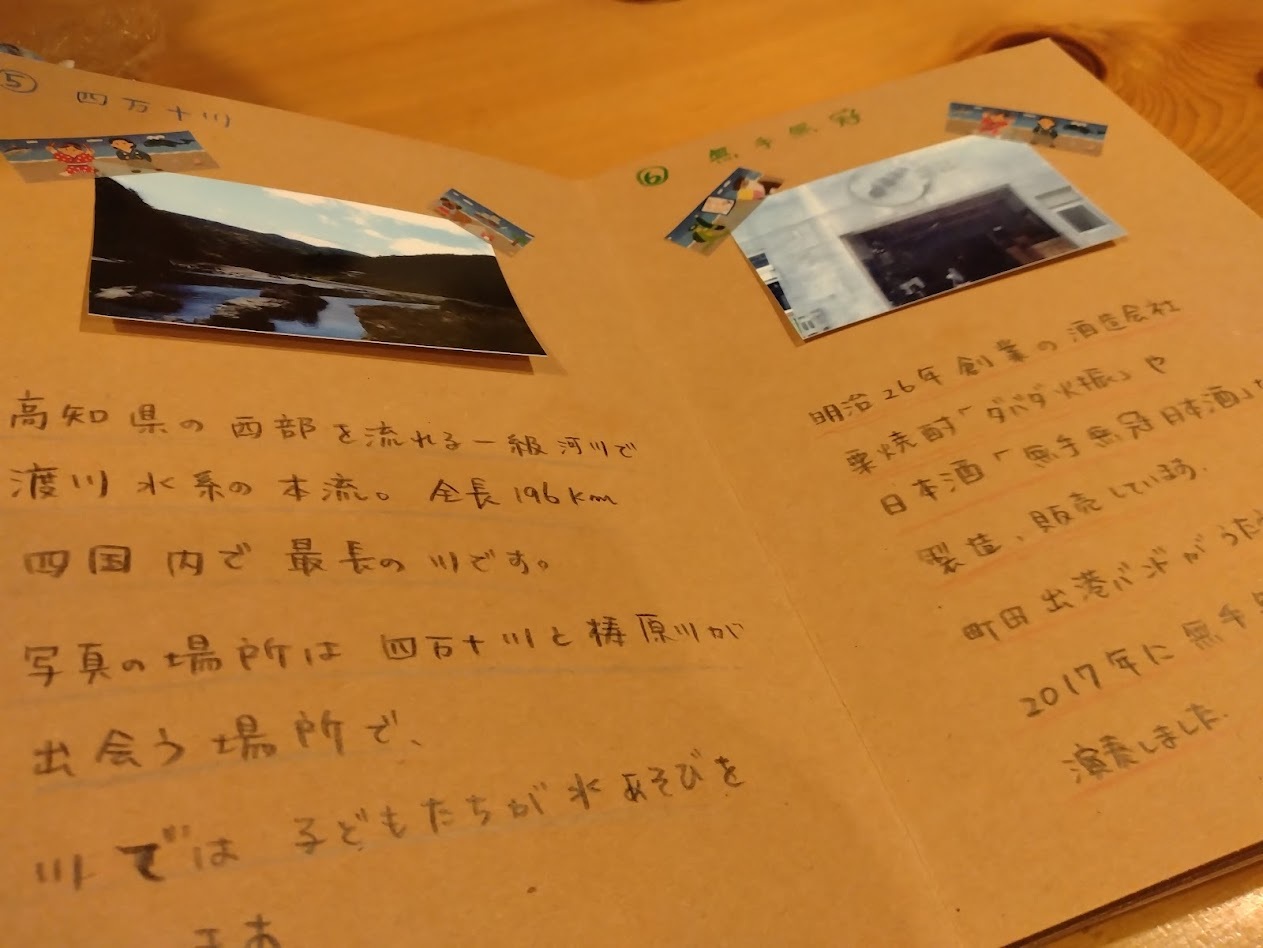 ⑤ 四万十川
高知県の西部を流れる一級河川で
渡川水系の本流。全長196km
四国内で最長の川です。
写真の場所は四万十川と梼原川が
出会う場所で、
川では子どもたちが水あそびを
⑥ 無手無冠
明治26年創業の酒造会社
栗焼酎「ダバダ火振」や
日本酒「無手無冠日本酒」
製造、販売しています.
町田出港バンドがうた
2017年に無手
演奏しました.